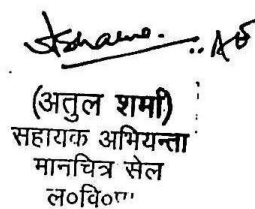 (अतुल शर्मा)
सहायक अभियन्ता
मानचित्र सेल
ल०वि०